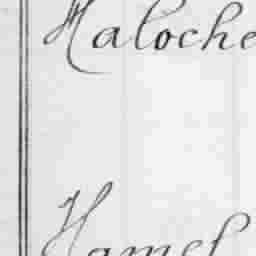 Haloche
Hamel